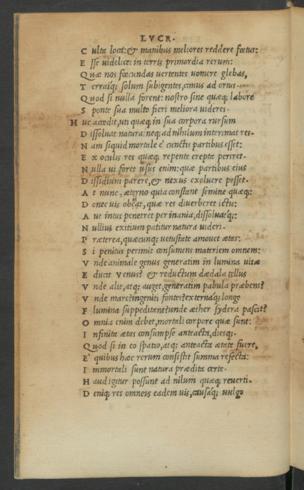 LVCR.
C ulta loca: & manibus meliores reddere fœtus:
E sse uidelicet in terris primordia rerum:
Quæ nos fœcundas uertentes uomere glebas,
T erraiq; solum subigentes, cimus ad ortus.
Quod si nulla forent: nostro sine quæq; labore
S ponte sua multo fieri meliora uideres.
H uc accedit, uti quæq; in sua corpora rursum
D issoluat natura: neq; ad nihilum interimat res.
N am siquid mortale é cunctis partibus esset:
E x oculis res quæq; repente erepta periret.
N ulla ui foret usus enim: quæ partibus eius
D issidium parere, & nexus exoluere posset.
A t nunc, æterno quia constant semine quæq;:
D onec uis obijt, quæ res diuerberet ictu;
A ut intus penetret per inania, dissoluatq;:
N ullius exitium patitur natura uideri.
P ræterea, quæcunq; uetustate amouet ætas:
S i penitus perimit consumens materiem omnem:
V nde animale genus generatim in lumina uitæ
R educit Venus? & reductum dædala tellus
V nde alit, atq; auget, generatim pabula præbens?
V nde mare, ingenui fontes, externaq; longe
F lumina suppeditent? unde æther sydera pascit?
O mnia enim debet, mortali corpore quæ sunt:
I nfinita ætas consumpse anteacta, diesq;.
Quod si in eo spatio, atq; anteacta ætate fuere,
E' quibus hæc rerum consistit summa refecta:
I mmortali sunt natura prædita certe.
H aud igitur possunt ad nilum quæq; reuerti.
D eniq; res omneis eadem uis, causaq; uulgo